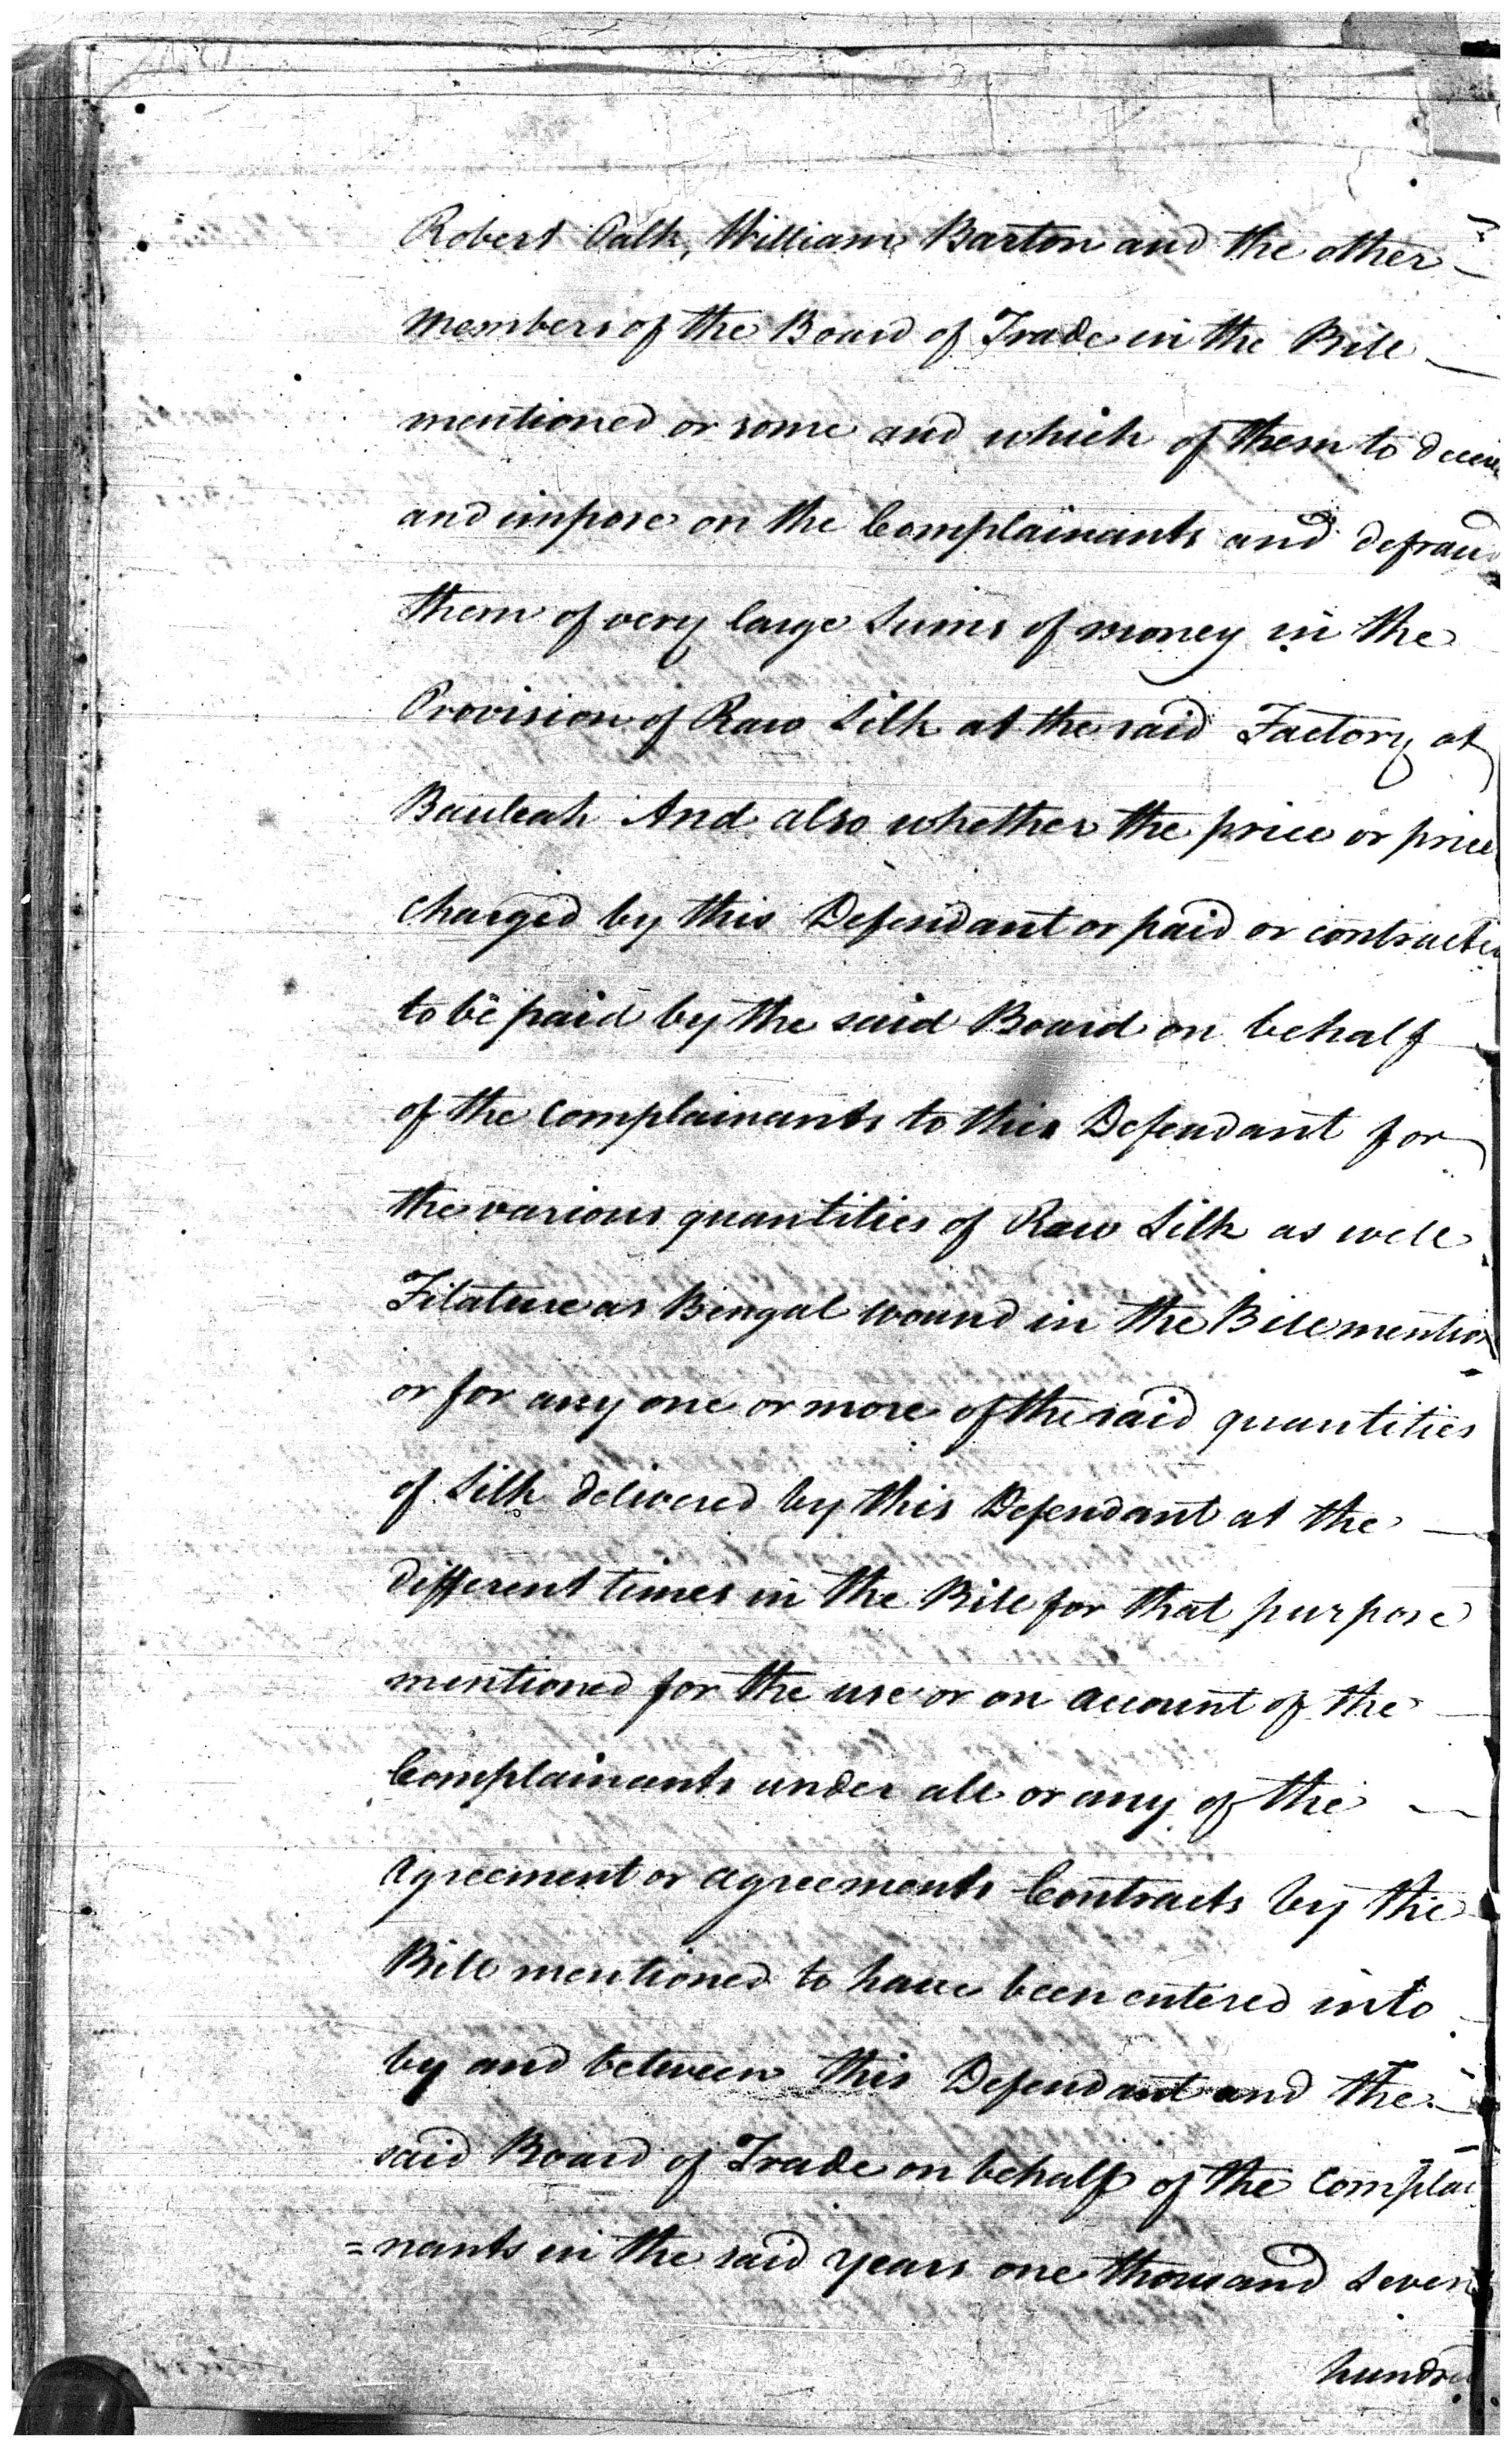 Robert Palk, William Barton and the other
members of the Board of Trade in the Bill
mentioned or some and which of them to decei
and impose on the Complainants and defraud
them of very large Sums of money in the
Provision of Raw Silk at the said Factory at
Bauleah And also whether the price or price
charged by this Defendant or paid or contracte
to be paid by the said Board on behalf
of the Complainants to this Defendant for
the various quantities of Raw Silk as well
Filature as Bengal wound in the Bill mention
or for any one or more of the said quantities
of Silk delivered by this Defendant at the
different times in the Bill for that purpose
mentioned for the use or on account of the
Complainants under all or any of the
Agreement or agreements Contracts by the
Bill mentioned to have been entered into
by and between this Defendant and the
said Board of Trade on behalf of the Complai
=nants in the said years one thousand Seven
hundre